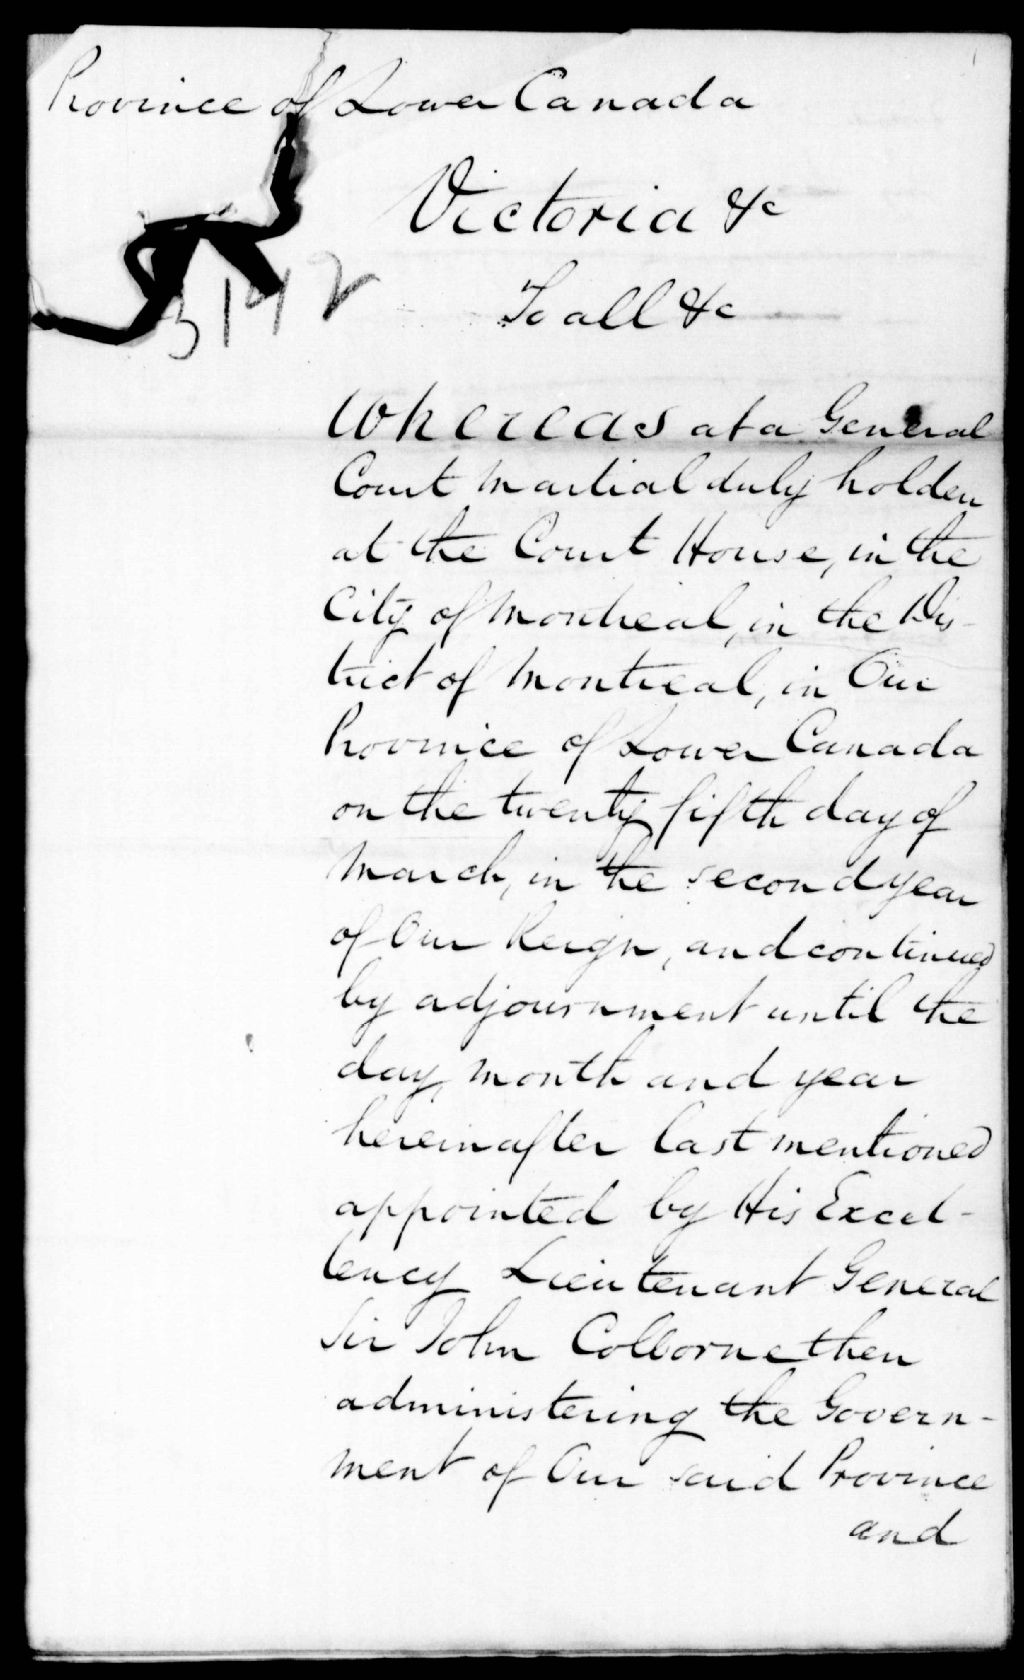 Province of Lower Canada
Victoria &c
To all &c
3142
Whereas at a General
Court Martial duly holden
at the Court House, in the
City of Montreal, in the Dis-
trict of Montreal, in Our
Province of Lower Canada
on the twenty fifth day of
March, in the second year
of Our Reign, and continued
by adjournment until the
day, month and year
hereinafter last mentioned
appointed by His Excel-
lency Lieutenant General
Sir John Colborne then
administering the Govern-
ment of Our said Province
and